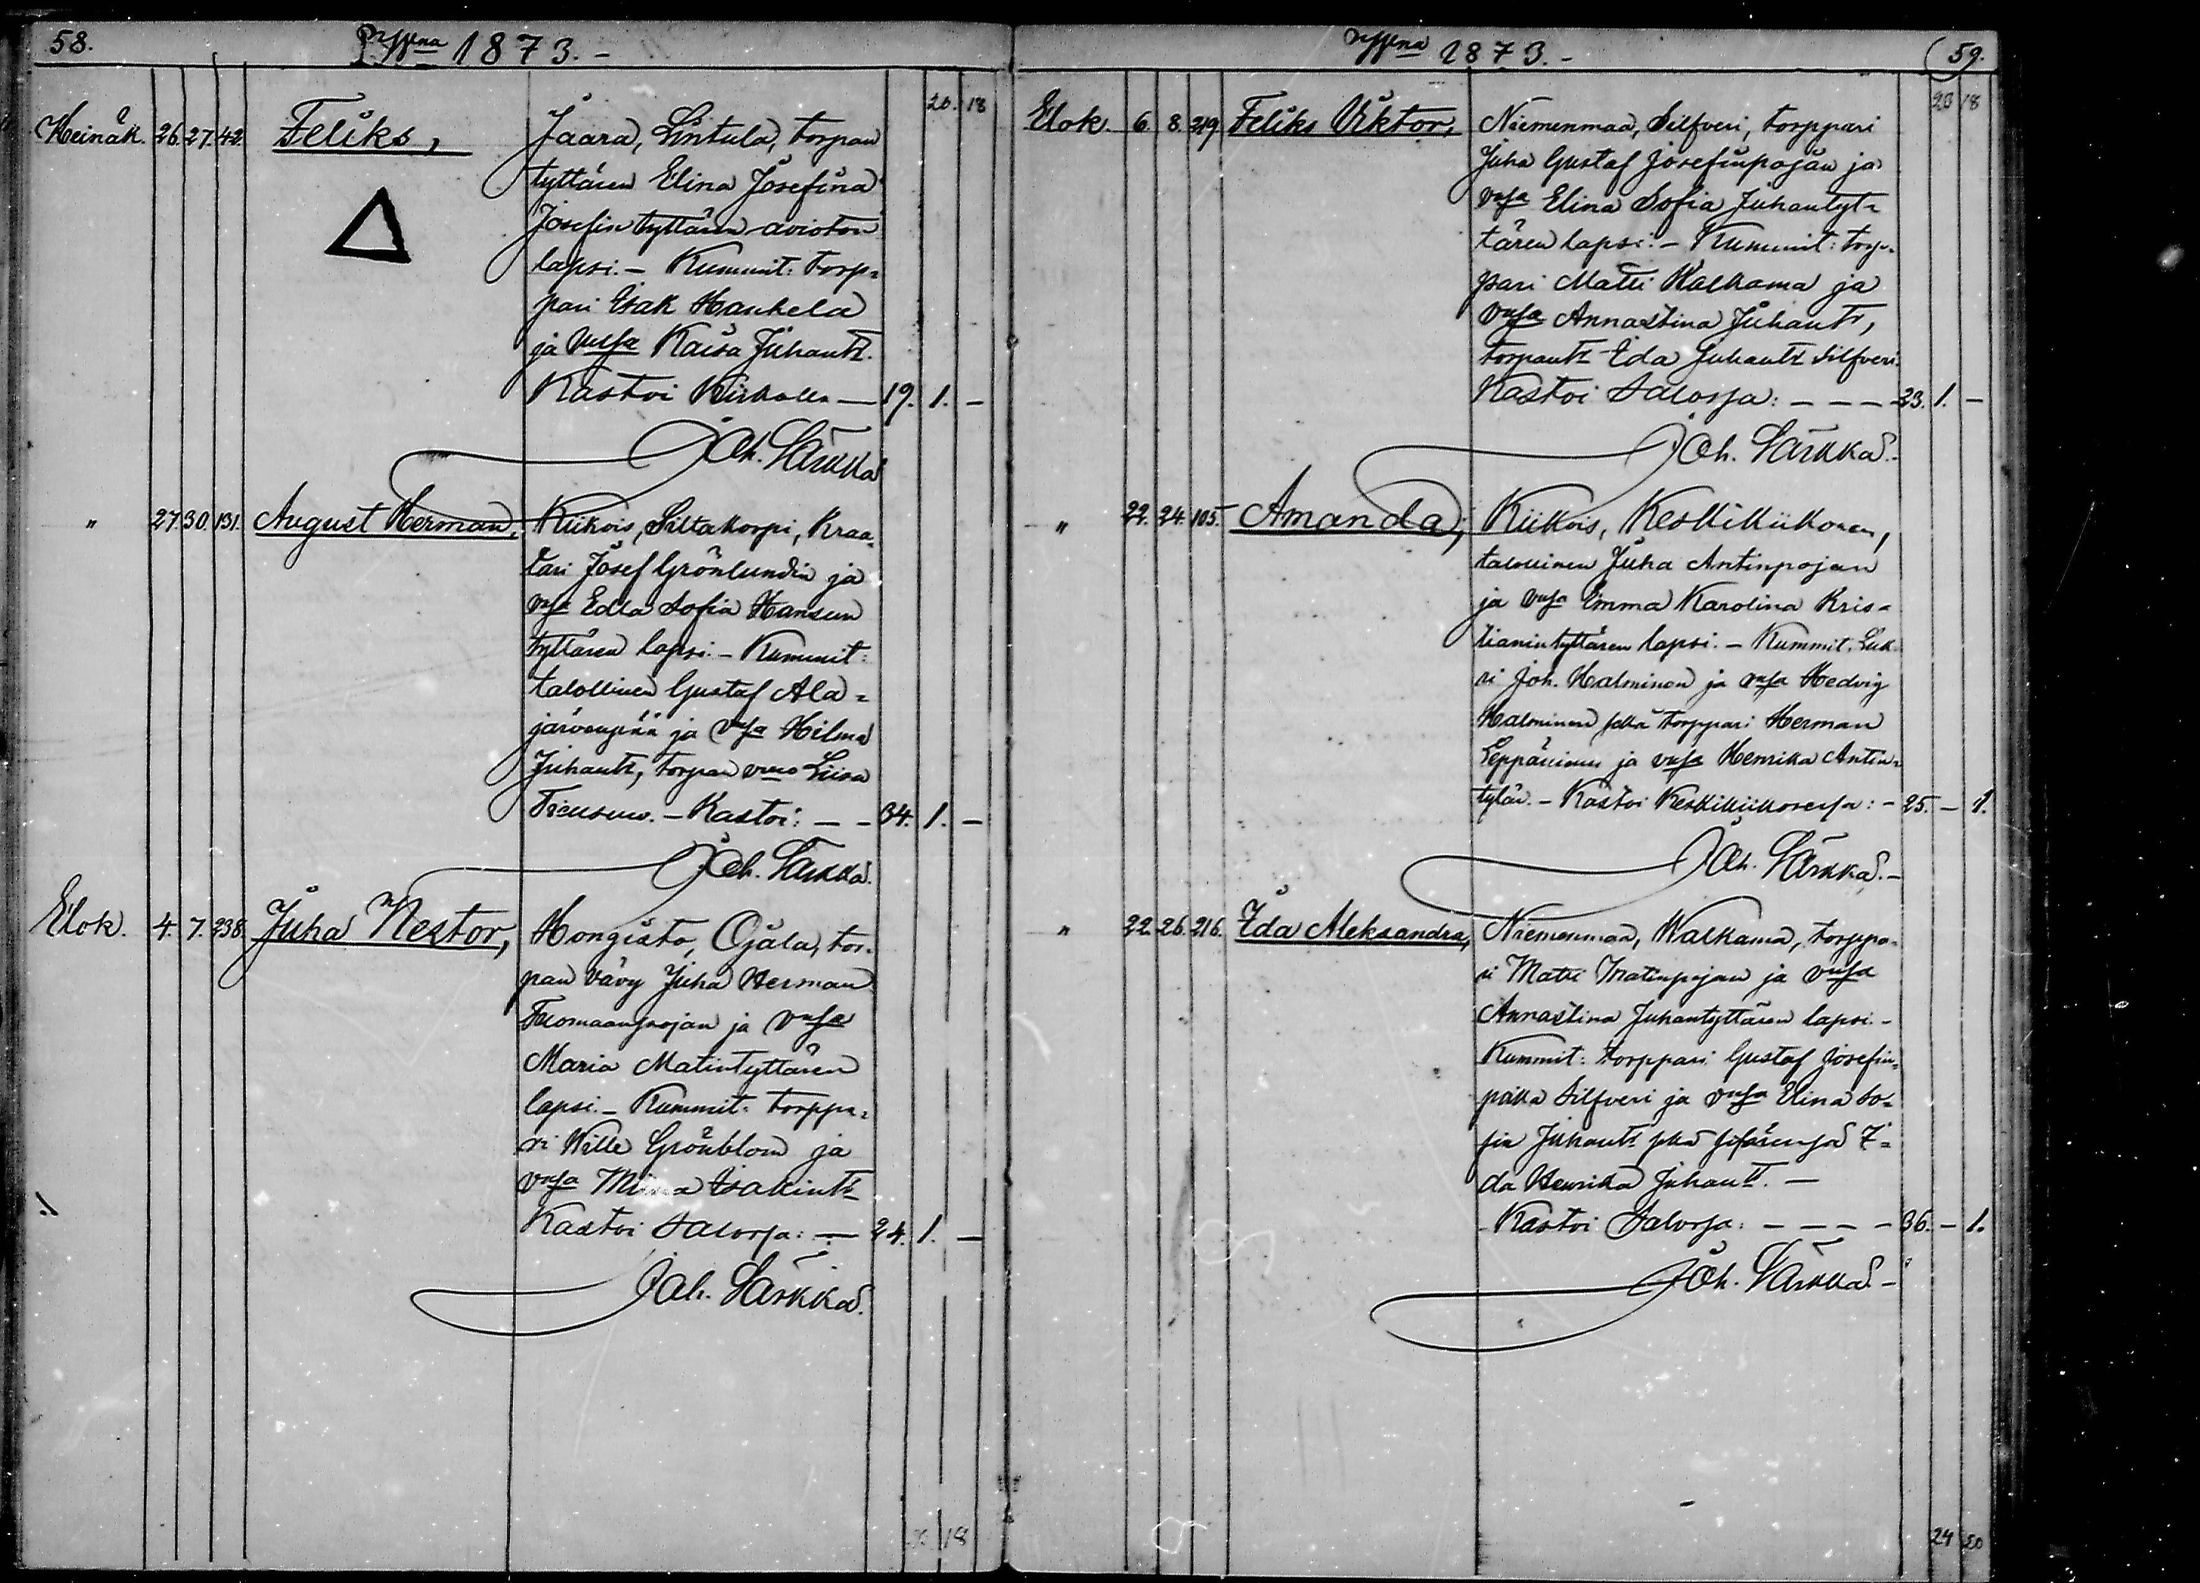 58.
1873.-
20. 18
Heinäk. 26. 27. 42. Feliks, Jaara, Lintula, torpan
tyttären Elina Josefina
Josefin tyttären avioton
lapsi. - Kummit: torp=
pari Isak Hankela
ja Kaisa Juhantr.
Kastoi - 19. 1. -
Joh. Särkkä
" 27. 30. 131. August Herman, Kiikois, Siltakorpi, Kraa=
tari Josef Grönlundin ja
Edla Sofia Hansun
tyttären lapsi. - Kummit:
talollinen Gustaf Ala=
järvenpää ja Hilma
Juhantr, torpan Liisa
- Kastoi: - - 34. 1. -
Joh. Särkkä.
Elok. 4. 7. 238. Juha Nestor, Hongisto, Ojala, tor=
pan vävy Juha Herman
Tuomaanpojan ja
Maria Matintyttären
lapsi. - Kummit: torppa=
ri Wille Grönblom ja
Isakintr
Kastoi Salossa: - 24. 1. -
Joh. Särkkä.
18
1873.-
59.
20 18
Elok. 6. 8. 219 Feliks Viktor, Niemenmaa, Silfveri, torppari
Juha Gustaf Josefinpojan ja
Elina Sofia Juhantyt=
tären lapsi. - Kummit: torp=
pari Matti Walkama ja
Annastina Juhantr,
torpantr Ida Juhantr Silfveri.
Kastoi Salossa: - - - 23. 1. -
Joh. Särkkä.-
" 22. 24. 105. Amanda, Kiikois, Keskikiikonen,
talollinen Juha Antinpojan
ja Emma Karolina Kris=
tianintyttären lapsi. - Kummit: Luk=
ri Joh. Halminen ja Hedvig
Halminen sekä torppari Herman
Leppänen ja Henrika Antin=
tytär. - Kastoi - 25. - 1.
Joh. Särkkä.-
" 22. 26. 216. Ida Aleksandra, Niemenmaa, Walkama, torppa=
ri Matti Matinpojan ja
Annastina Juhantyttären lapsi. -
Kummit: torppari Gustaf Josefin=
poika Silfveri ja Elina So=
fia Juhantr sekä I=
da Henrika Juhantr. -
- Kastoi Salossa: - - - - 36. - 1.
Joh. Särkkä.-
24 20